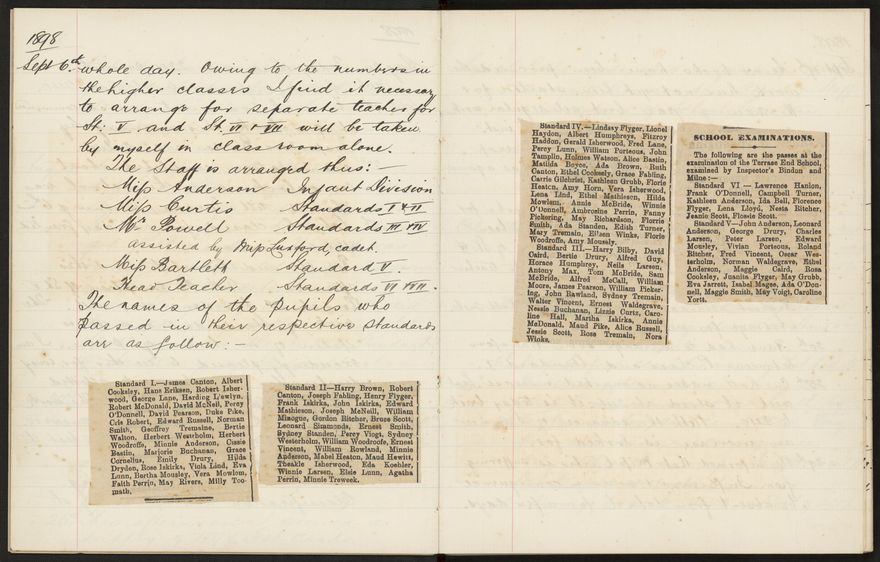 1898
Sept 6th whole day. Owing to the numbers in
the higher classes I find it necessary
to arrange for separate teacher for
St: V and St VI & VII will be taken
by myself in class room alone.
The Staff is arranged thus:
Miss Anderson Infant Division
Miss Curtis Standards I & II
Mr Powell Standards III & IV
assisted by Miss Luxford, cadet.
Miss Bartlett Standard V.
Head Teacher Standards VI & VII.
The names of the pupils who
passed in their respective standards
are as follow:—
Standard I.—James Canton, Albert
Cooksley, Hans Eriksen, Robert Isher-
wood, George Lane, Harding L'ewlyn,
Robert McDonald, David McNeil, Percy
O'Donnell, David Pearson, Duke Pike,
Cris Robert, Edward Russell, Norman
Smith, Geoffrey Tremaine, Bertie
Walton, Herbert Westrholm, Herbert
Woodroffe, Minnie Anderson, Cissie
Bastin, Marjorie Buchanan, Grace
Cornelius, Emily Drury, Hilda
Dryden, Rose Iskirks, Viola Lind, Eva
Lunn, Bertha Mousley, Vera Mowlem,
Faith Perrin, May Rivers, Milly Too-
math.
Standard II—Harry Brown, Robert
Canton, Joseph Fabling, Henry Flyger,
Frank Iskirks, John Iskirks, Edward
Mathieson, Joseph McNeill, William
Minogue, Gordon Ritcher, Bruce Scott,
Leonard Simmonds, Ernest Smith,
Sydney Standen, Percy Viogt, Sydney
Westerholm, William Woodroofe, Ernest
Vincent, William Rowland, Minnie
Anderson, Mabel Heaton, Maud Hewitt,
Theakle Isherwood, Eda Koebler,
Winnie Larsen, Elsie Lunn, Agatha
Perrin, Minnie Treweek.
Standard IV.—Lindsay Flyger, Lionel
Haydon, Albert Humphreys, Fitzroy
Haddon, Gerald Isherwood, Fred Lane,
Percy Lunn, William Porteous, John
Tamplin, Holmes Watson, Alice Bastin,
Matilda Boyce, Ada Brown, Ruth
Canton, Ethel Cooksely, Grace Fabling,
Carrie Gilchrist, Kathleen Grubb, Florie
Heaton, Amy Horn, Vera Isherwood,
Lena Lind, Ethel Mathieson, Hilda
Mowlem, Annie McBride, Winnie
O'Donnell, Ambrosine Perrin, Fanny
Pickering, May Richardson, Florrie
Smith, Ada Standen, Edith Turner,
Mary Tremain, Eileen Winks, Florie
Woodroffe, Amy Mousely.
Standard III.—Harry Bilby, David
Caird, Bertie Drury, Alfred Guy,
Horace Humphrey, Neils Larsen,
Antony Max, Tom McBride, Sam
McBride, Alfred McCall, William
Moore, James Pearson, William Picker-
ing, John Rawland, Sydney Tremain,
Walter Vincent, Ernest Waldegrave,
Nessie Buchanan, Lizzie Curtz, Caro-
line Hall, Martha Iskirks, Annie
McDonald, Maud Pike, Alice Russell,
Jessie Scott, Rose Tremain, Nora
Winks.
SCHOOL EXAMINATIONS.
The following are the passes at the
examination of the Terrace End School,
examined by Inspector's Bindon and
Milne:—
Standard VI — Lawrence Hanlon,
Frank O'Donnell, Campbell Turner,
Kathleen Anderson, Ida Bell, Florence
Flyger, Lena Lloyd, Nesta Ritcher,
Jeanie Scott, Flossie Scott.
Standard V—John Anderson, Leonard
Anderson, George Drury, Charles
Larsen, Peter Larsen, Edward
Mousley, Vivian Porteous, Roland
Ritcher, Fred Vincent, Oscar Wes-
terholm, Norman Waldegrave, Ethel
Anderson, Maggie Caird, Rosa
Cooksley, Juanita Flyger, May Grubb,
Eva Jarrett, Isabel Magee, Ada O'Don-
nell, Maggie Smith, May Voigt, Caroline
Yortt.